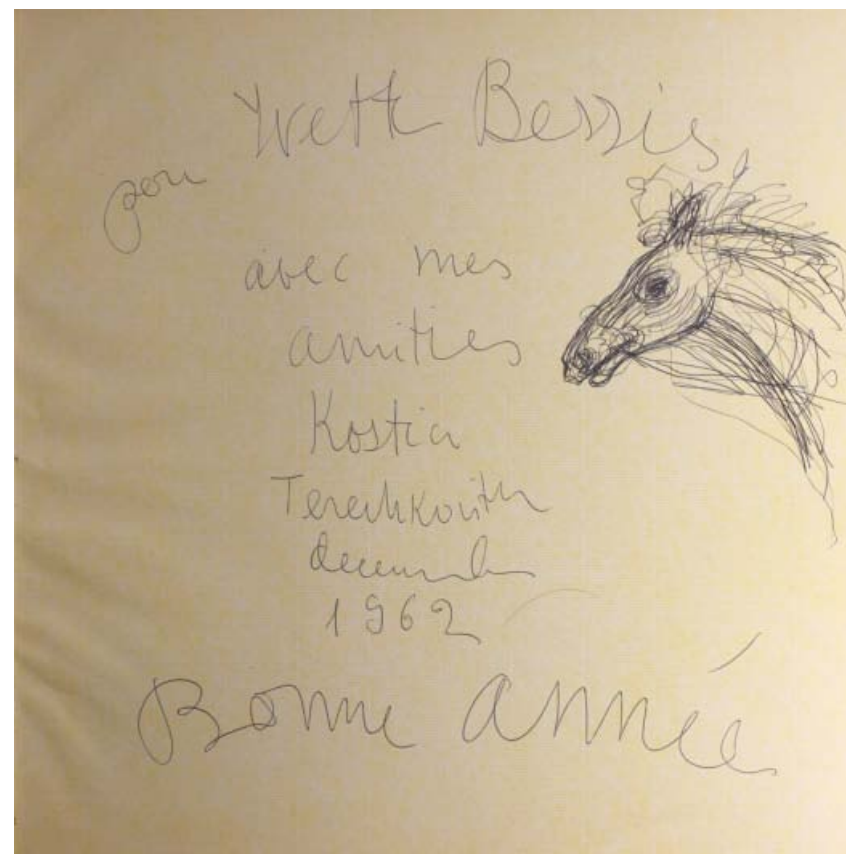 pour
Yvette Bessis
avec mes
amitiés
Kostia
Terechkovitch
decembre
1962
Bonne année